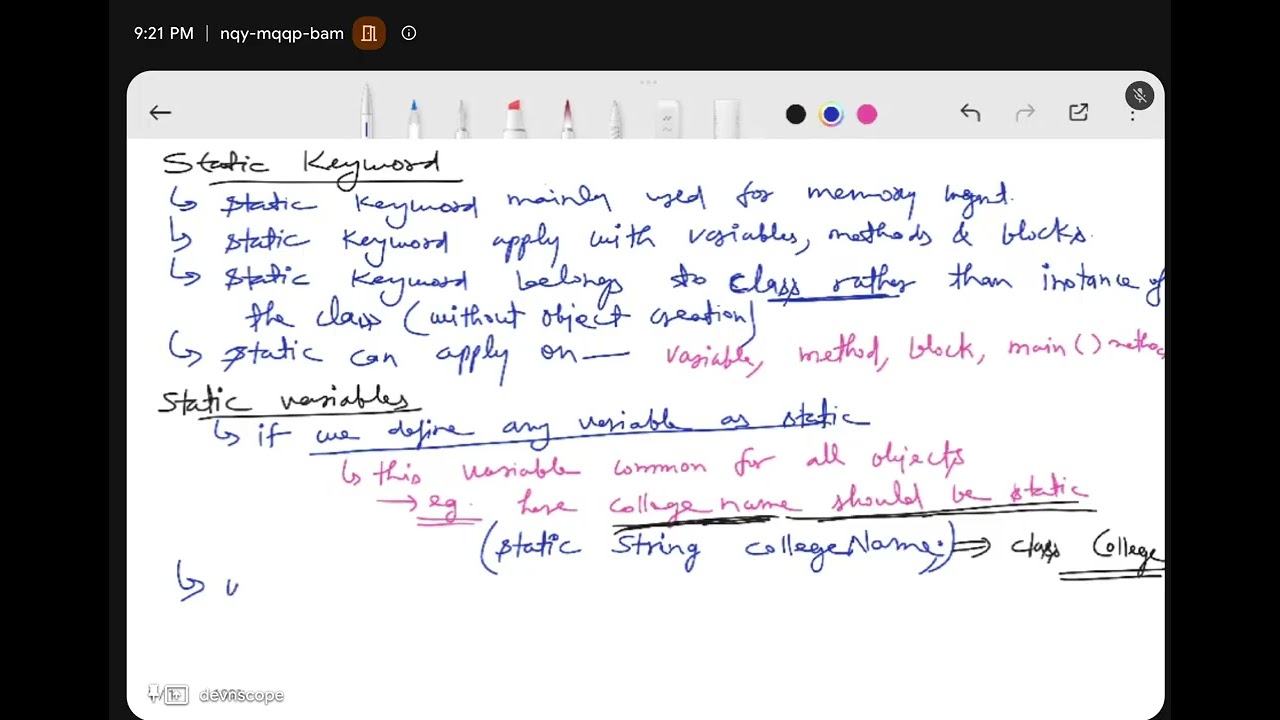 9:21 PM | nqy-mqqp-bam
Static Keyword
↳ static keyword mainly used for memory mgmt.
↳ static keyword apply with variables, methods & blocks.
↳ static keyword belongs to class rather than instance of
the class (without object creation)
↳ static can apply on — variable, method, block, main() method
Static variables
↳ if we define any variable as static
↳ this variable common for all objects
→ eg. here college name should be static
(static String collegeName;) ⇒ class College
↳
devnscope